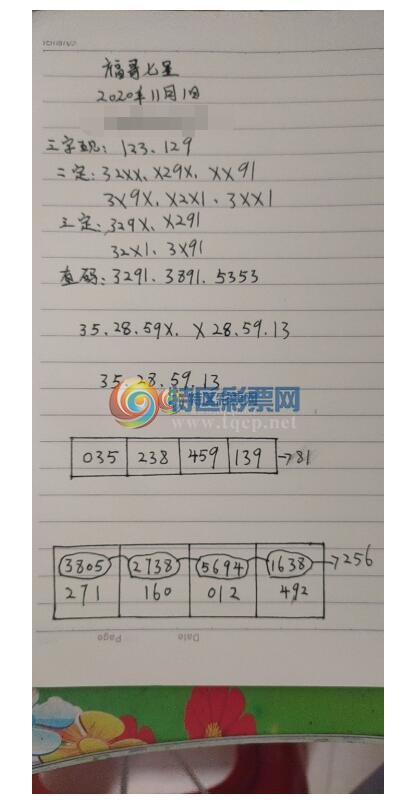 福哥七星
2020年11月1日
三字现: 123、129
二定: 32XX、X29X、XX91
3X9X、X2X1、3XX1
三定: 329X、X291
32X1、3X91
直码: 3291、3891、5353
35.28.59X、X28.59.13
35.28.59.13
特区彩票网
www.tqcp.net
035 238 459 139 →81
3805 2738 5694 1638 →256
271 160 012 492
Page Date